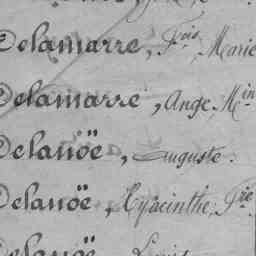 Delamarre, Fois Marie
Delamarre, Ange Min
Delanöë, Auguste.
Delanöë, Hyacinthe, Pre
Delanöë Louis